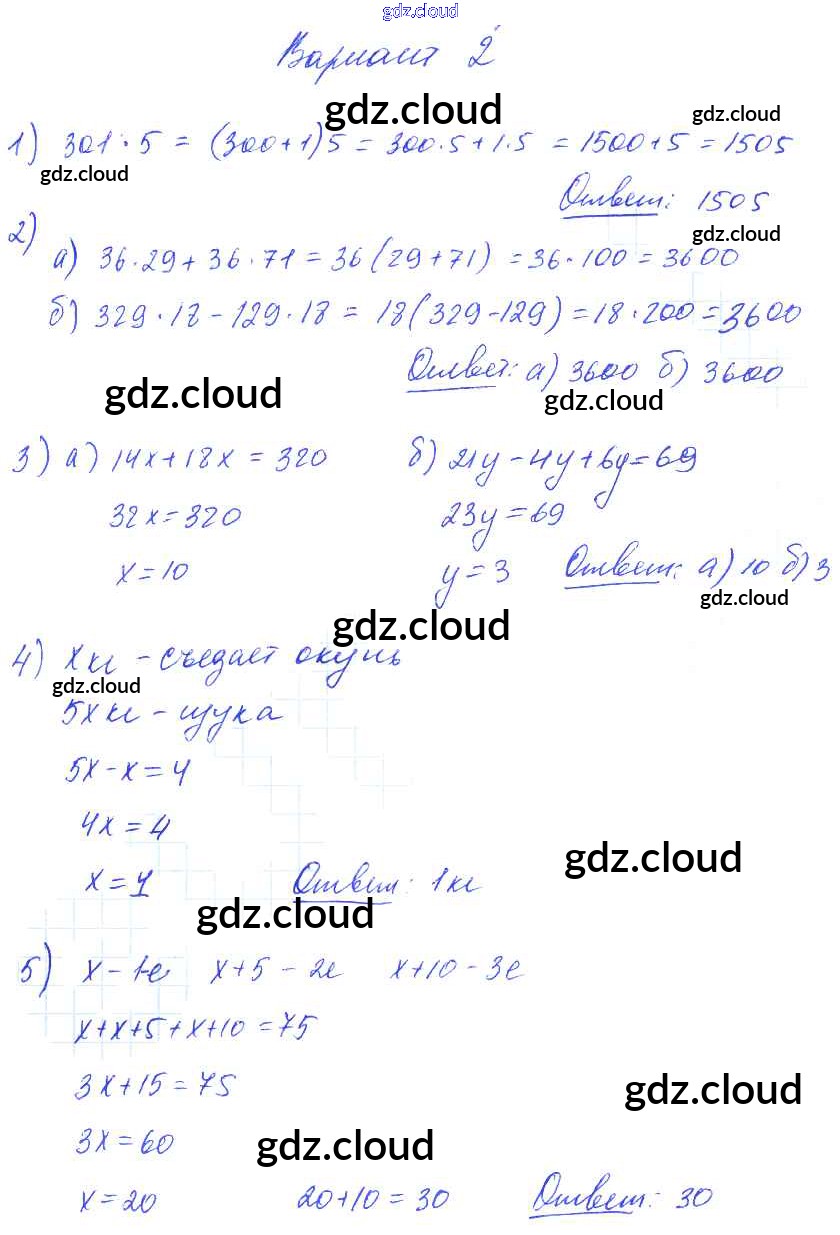 gdz.cloud
Вариант 2
gdz.cloud
gdz.cloud
1) 301 · 5 = (300+1)5 = 300·5+1·5 = 1500+5 = 1505
gdz.cloud
Ответ: 1505
gdz.cloud
2)
а) 36·29+36·71 = 36(29+71) = 36·100 = 3600
б) 329·18-129·18 = 18(329-129) = 18·200 = 3600
Ответ: а) 3600 б) 3600
gdz.cloud
gdz.cloud
3) а) 14x+18x = 320 б) 21y-4y+6y=69
32x=320 23y=69
x=10 y=3 Ответ: а) 10 б) 3
gdz.cloud
gdz.cloud
4) x кг - съедает окунь
gdz.cloud
5x кг - щука
5x-x=4
4x=4
gdz.cloud
x=1 Ответ: 1кг
gdz.cloud
5) x - 1-е x+5 - 2е x+10 - 3е
x+x+5+x+10=75
3x+15=75
gdz.cloud
3x=60
gdz.cloud
x=20 20+10=30 Ответ: 30